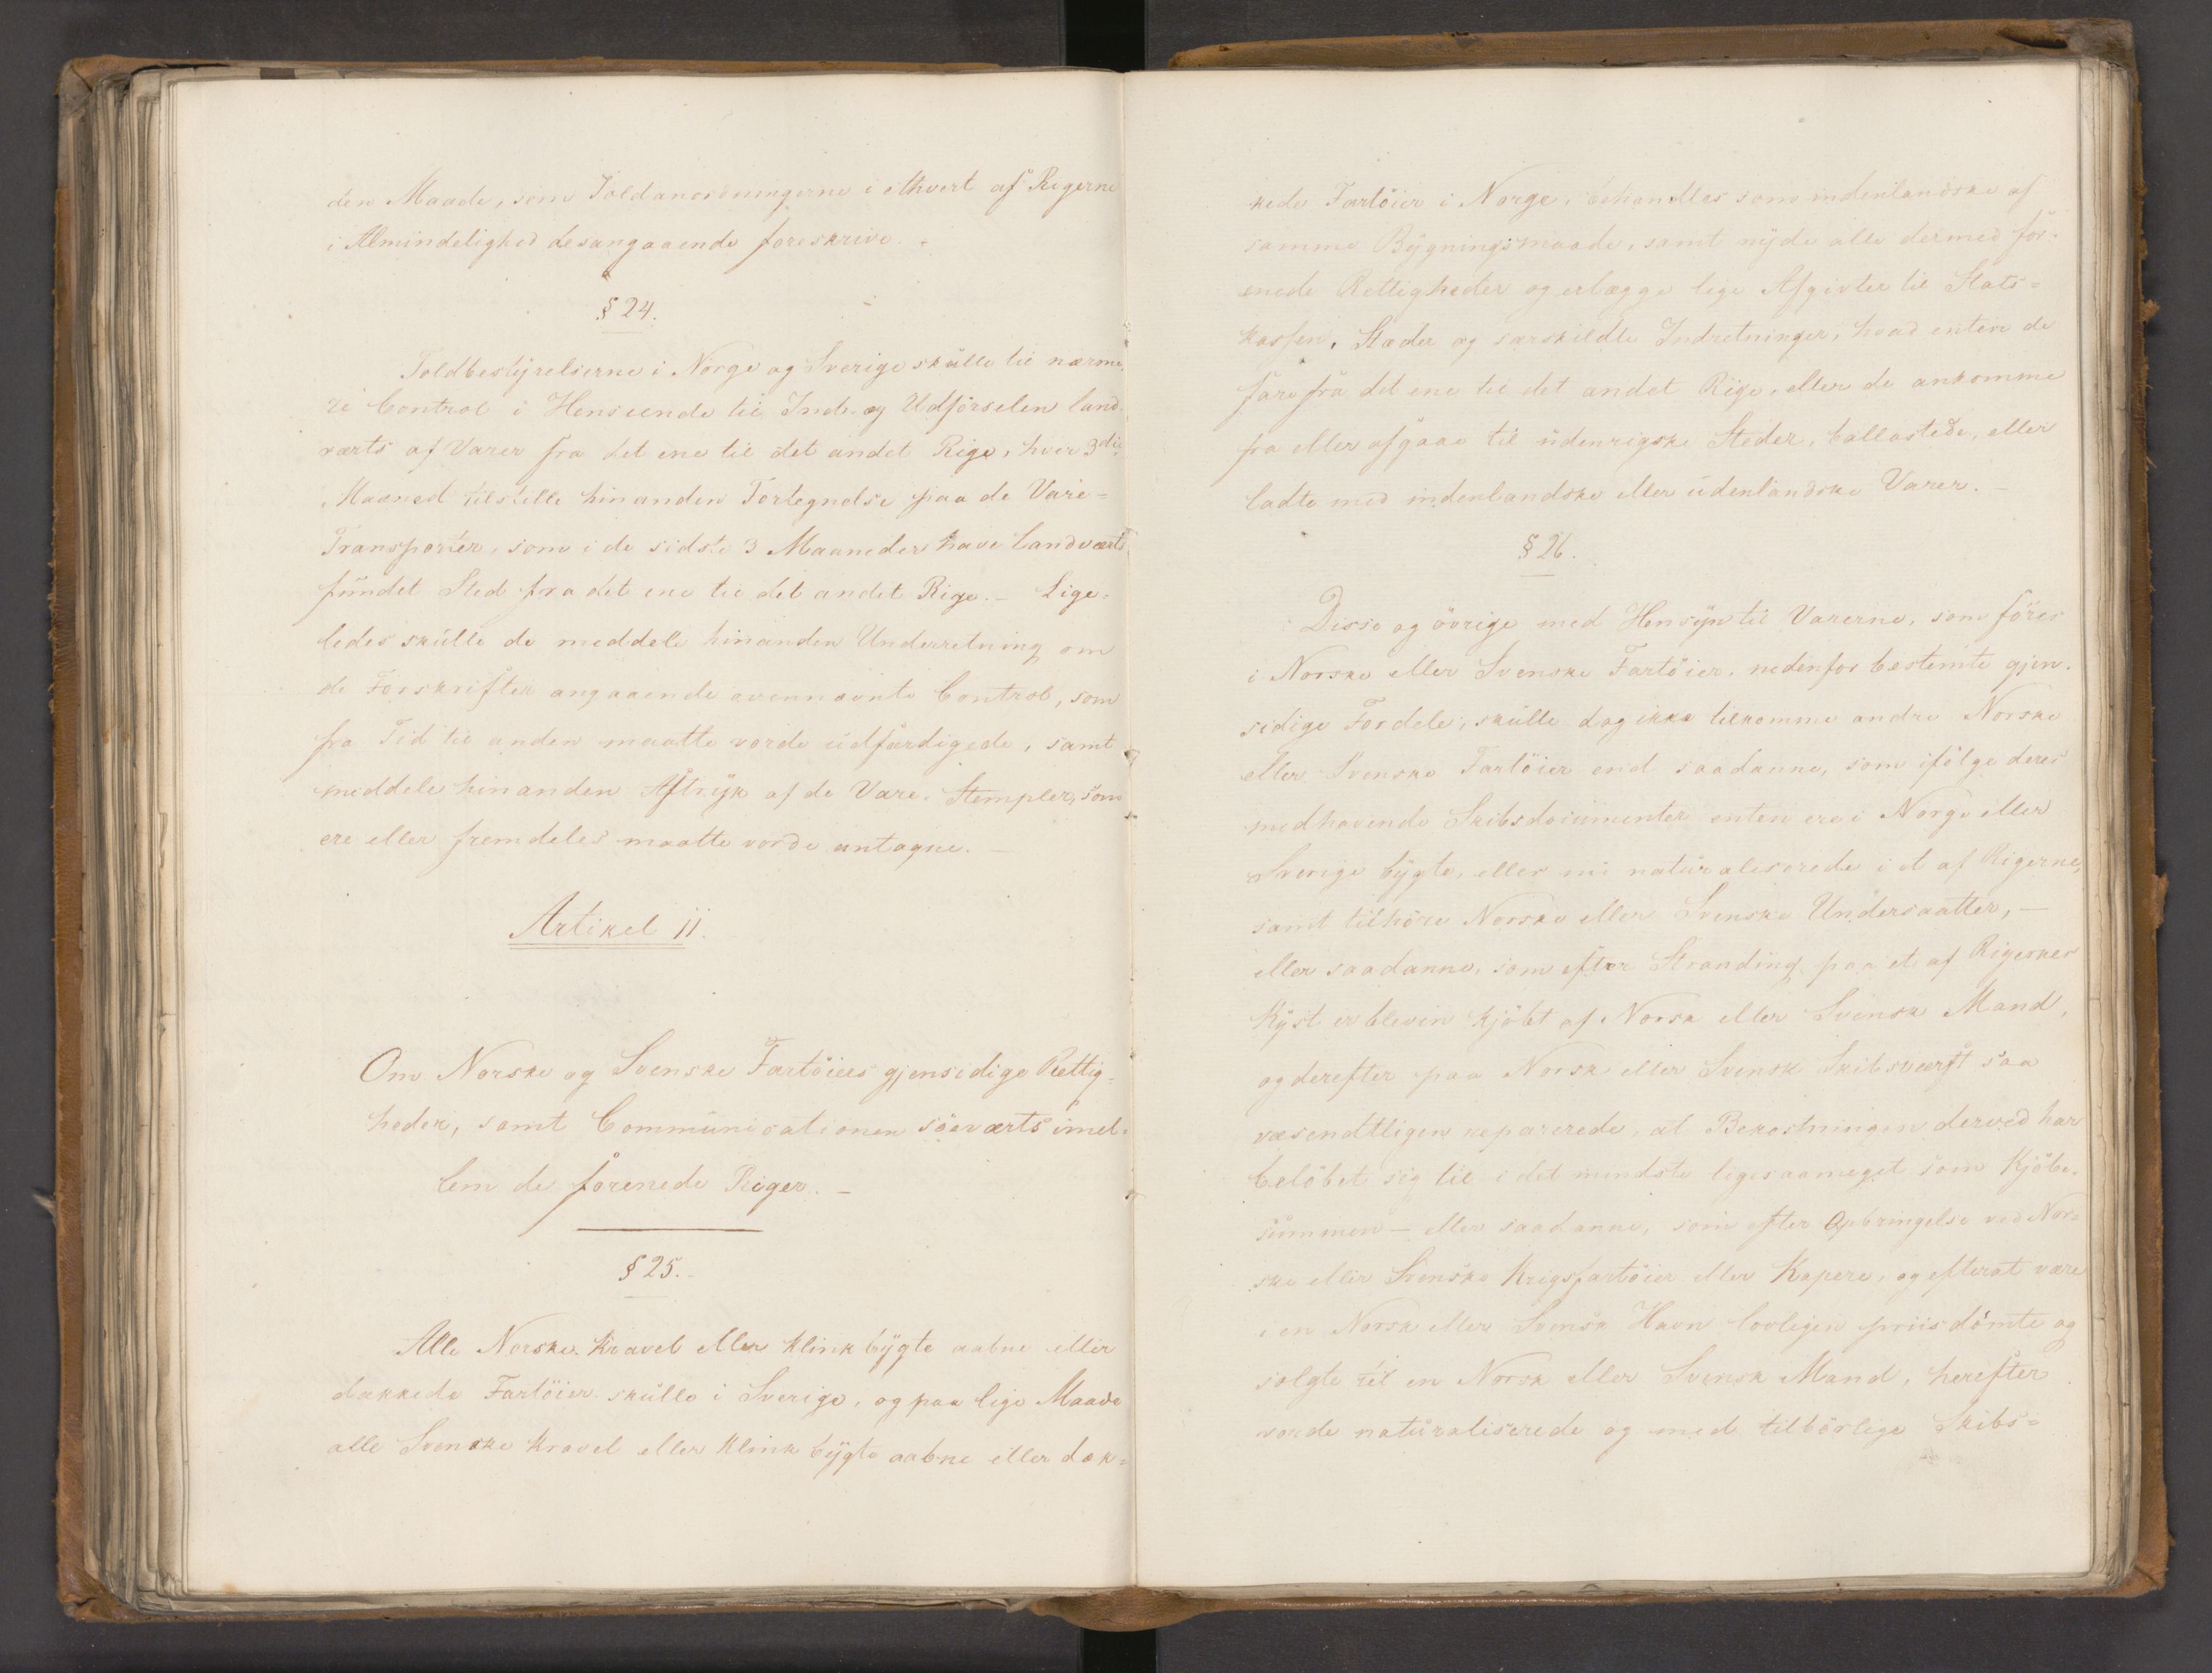 den Maade, som Toldanordningerne i ethvert af Rigerne
i Almindelighed desangaaende foreskrive.
§ 24.
Toldbestÿrelserne i Norge og Sverige skulle til nærme-
re Control i Henseende til Ind- og Udförselen land-
værts af Varer fra det ene til det andet Rige, hver 3die
Maaned tilstille hinanden Fortegnelse paa de Vare=
Transporter, som i de sidste 3 Maaneder have Landværts
fundet Sted fra det ene til det andet Rige. – Lige-
ledes skulle de meddele hinanden Underretning om
de Forskrifter angaaende ovennævnte Control, som
fra Tid til anden maatte vorde udfærdigede, samt
meddele hinanden Aftrÿk af de Vare-Stempler, som
ere eller fremdeles maatte vorde antagne. –
Artikel II.
Om Norske og Svenske Fartöiers gjensidige Rettig-
heder, samt Communicationen söeværts imel-
lem de forenede Riger. –
§ 25.
Alle Norske Kravel eller Klink bÿgte aabne eller
dækkede Fartöier skulle i Sverige, og paa lige Maade
alle Svenske Kravel eller Klink bÿgte aabne eller dæk-
kede Fartöier i Norge, behandles som indenlandske af
samme Bÿgningsmaade, samt nÿde alle dermed for-
enede Rettigheder og erlægge lige Afgivter til Stats=
kassen, Stæder og særskildte Indretninger, hvad enten de
fare fra det ene til det andet Rige, eller de ankomme
fra eller afgaae til udenrigske Steder, ballastede, eller
ladte med indenlandske eller udenlandske Varer. –
§ 26.
Disse og övrige med Hensÿn til Varerne, som föres
i Norske eller Svenske Fartöier, nedenfor bestemte gjen-
sidige Fordele, skulle dog ikke tilkomme andre Norske
eller Svenske Fartöier end saadanne, som ifölge deres
medhavende Skibsdocumenter enten ere i Norge eller
Sverige bÿgte, eller nu naturaliserede i et af Rigerne,
samt tilhöre Norske eller Svenske Undersaatter, –
eller saadanne, som efter Stranding paa et af Rigernes
Kÿst er bleven kjöbt af Norsk eller Svensk Mand,
og derefter paa Norsk eller Svensk Skibsværft saa
væsendtligen reparerede, at Bekostningen derved har
belöbet sig til i det mindste ligesaameget som Kjöbe-
summen – eller saadanne, som efter Opbringelse ved Nor-
ske eller Svenske Krigsfartöier eller Kapere, og efterat være
i en Norsk eller Svensk Havn lovligen priisdömte og
solgte til en Norsk eller Svensk Mand, herefter
vorde naturaliserede og med tilbörlige Skibs=